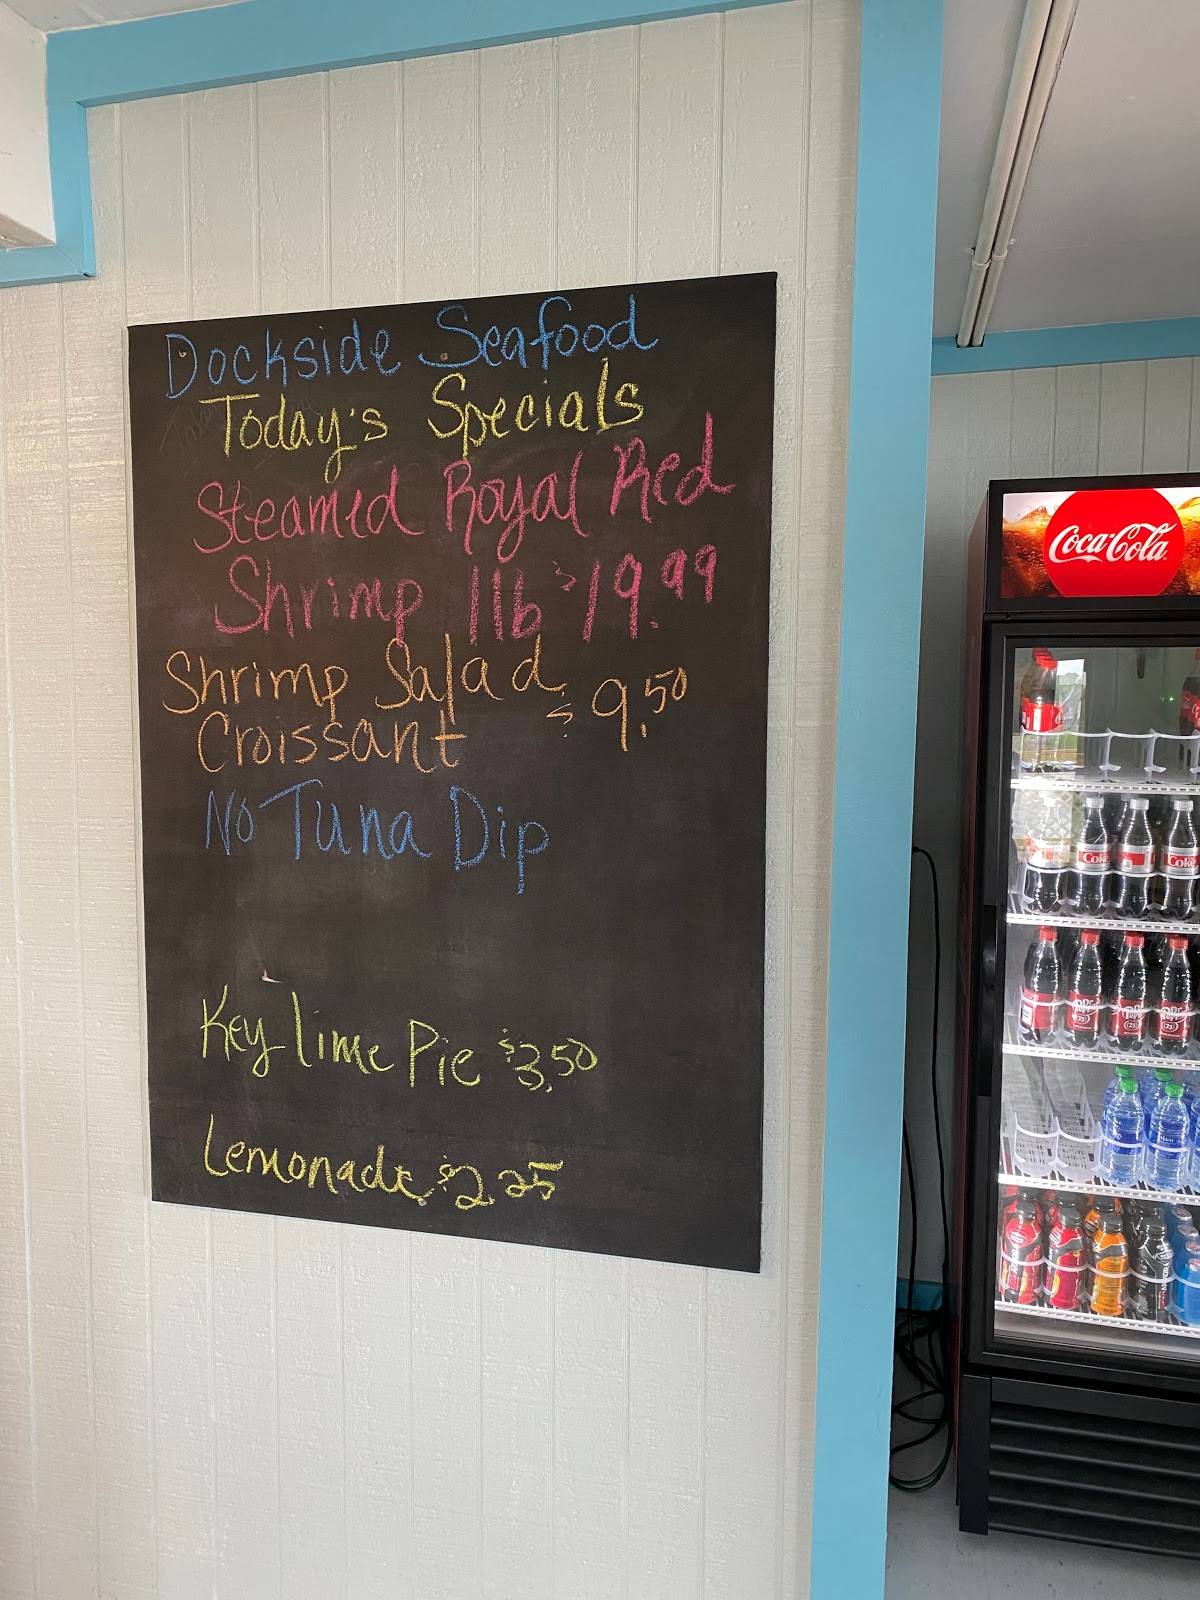 Dockside Seafood
Today's Specials
Steamed Royal Red
Shrimp 1lb $19.99
Shrimp Salad
Croissant $9.50
No Tuna Dip
Key lime Pie $3.50
Lemonade $2.25
Coca-Cola
Coke
Coke
Dr Pepper
23
Dr Pepper
23